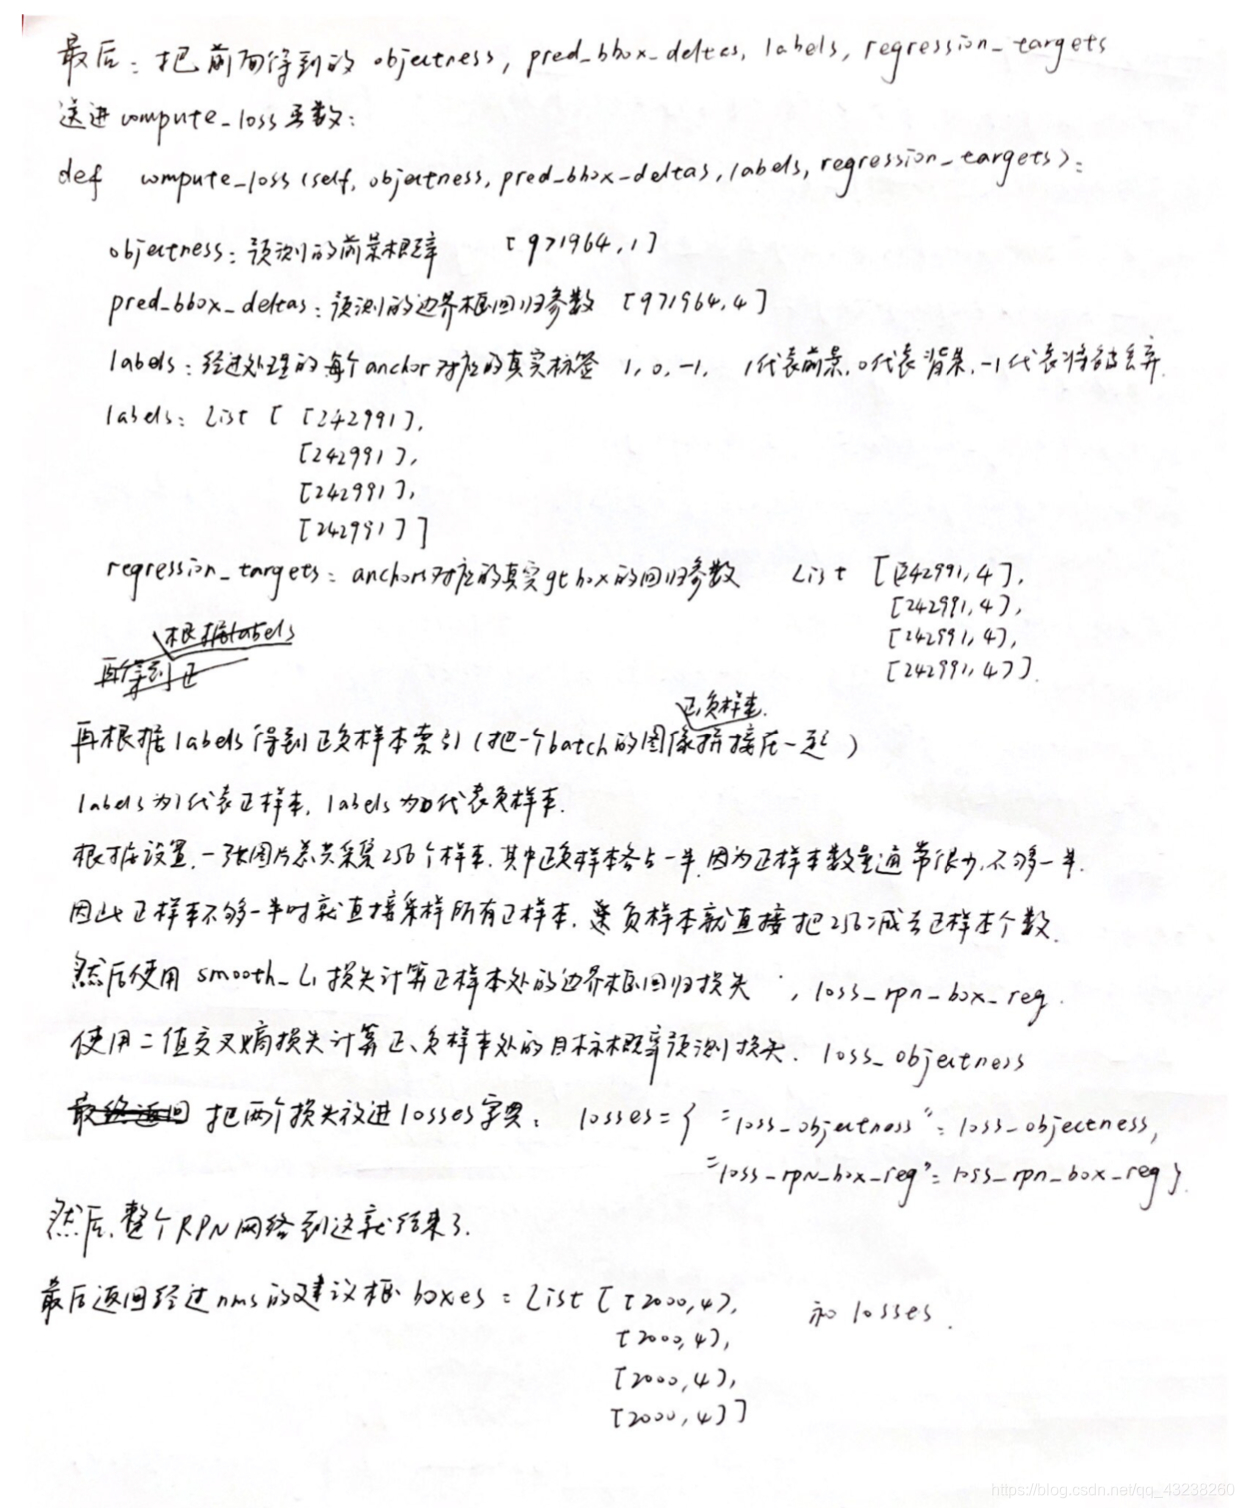 最后：把前面得到的 objectness, pred_bbox_deltas, labels, regression_targets
送进 compute_loss 函数：
def compute_loss (self, objectness, pred_bbox_deltas, labels, regression_targets):
objectness：预测的前景概率 [971964, 1]
pred_bbox_deltas：预测的边界框回归参数 [971964, 4]
labels：经过处理的每个anchor对应的真实标签 1, 0, -1, 1代表前景, 0代表背景, -1代表将被丢弃.
labels：List [ [242991],
[242991],
[242991],
[242991] ]
regression_targets：anchors对应的真实gt box的回归参数 List [[242991, 4],
[242991, 4],
[242991, 4],
[242991, 4]].
根据labels
再得到正
正,负样本.
再根据labels得到正负样本索引(把一个batch的图像拼接在一起)
labels为1代表正样本, labels为0代表负样本.
根据设置,一张图片总共采集256个样本.其中正负样本各占一半.因为正样本数量通常很少,不够一半.
因此正样本不够一半时就直接采样所有正样本, 负样本就直接把256减去正样本个数.
然后使用 smooth_L1 损失计算正样本处的边界框回归损失 , loss_rpn_box_reg.
使用二值交叉熵损失计算正、负样本处的目标概率预测损失. loss_objectness
最终返回 把两个损失放进losses字典： losses={ "loss_objectness": loss_objectness,
"loss_rpn_box_reg": loss_rpn_box_reg}.
然后,整个RPN网络到这就结束了.
最后返回经过nms的建议框 boxes：List [[2000,4], 和 losses.
[2000,4],
[2000,4],
[2000,4]]
https://blog.csdn.net/qq_43238260